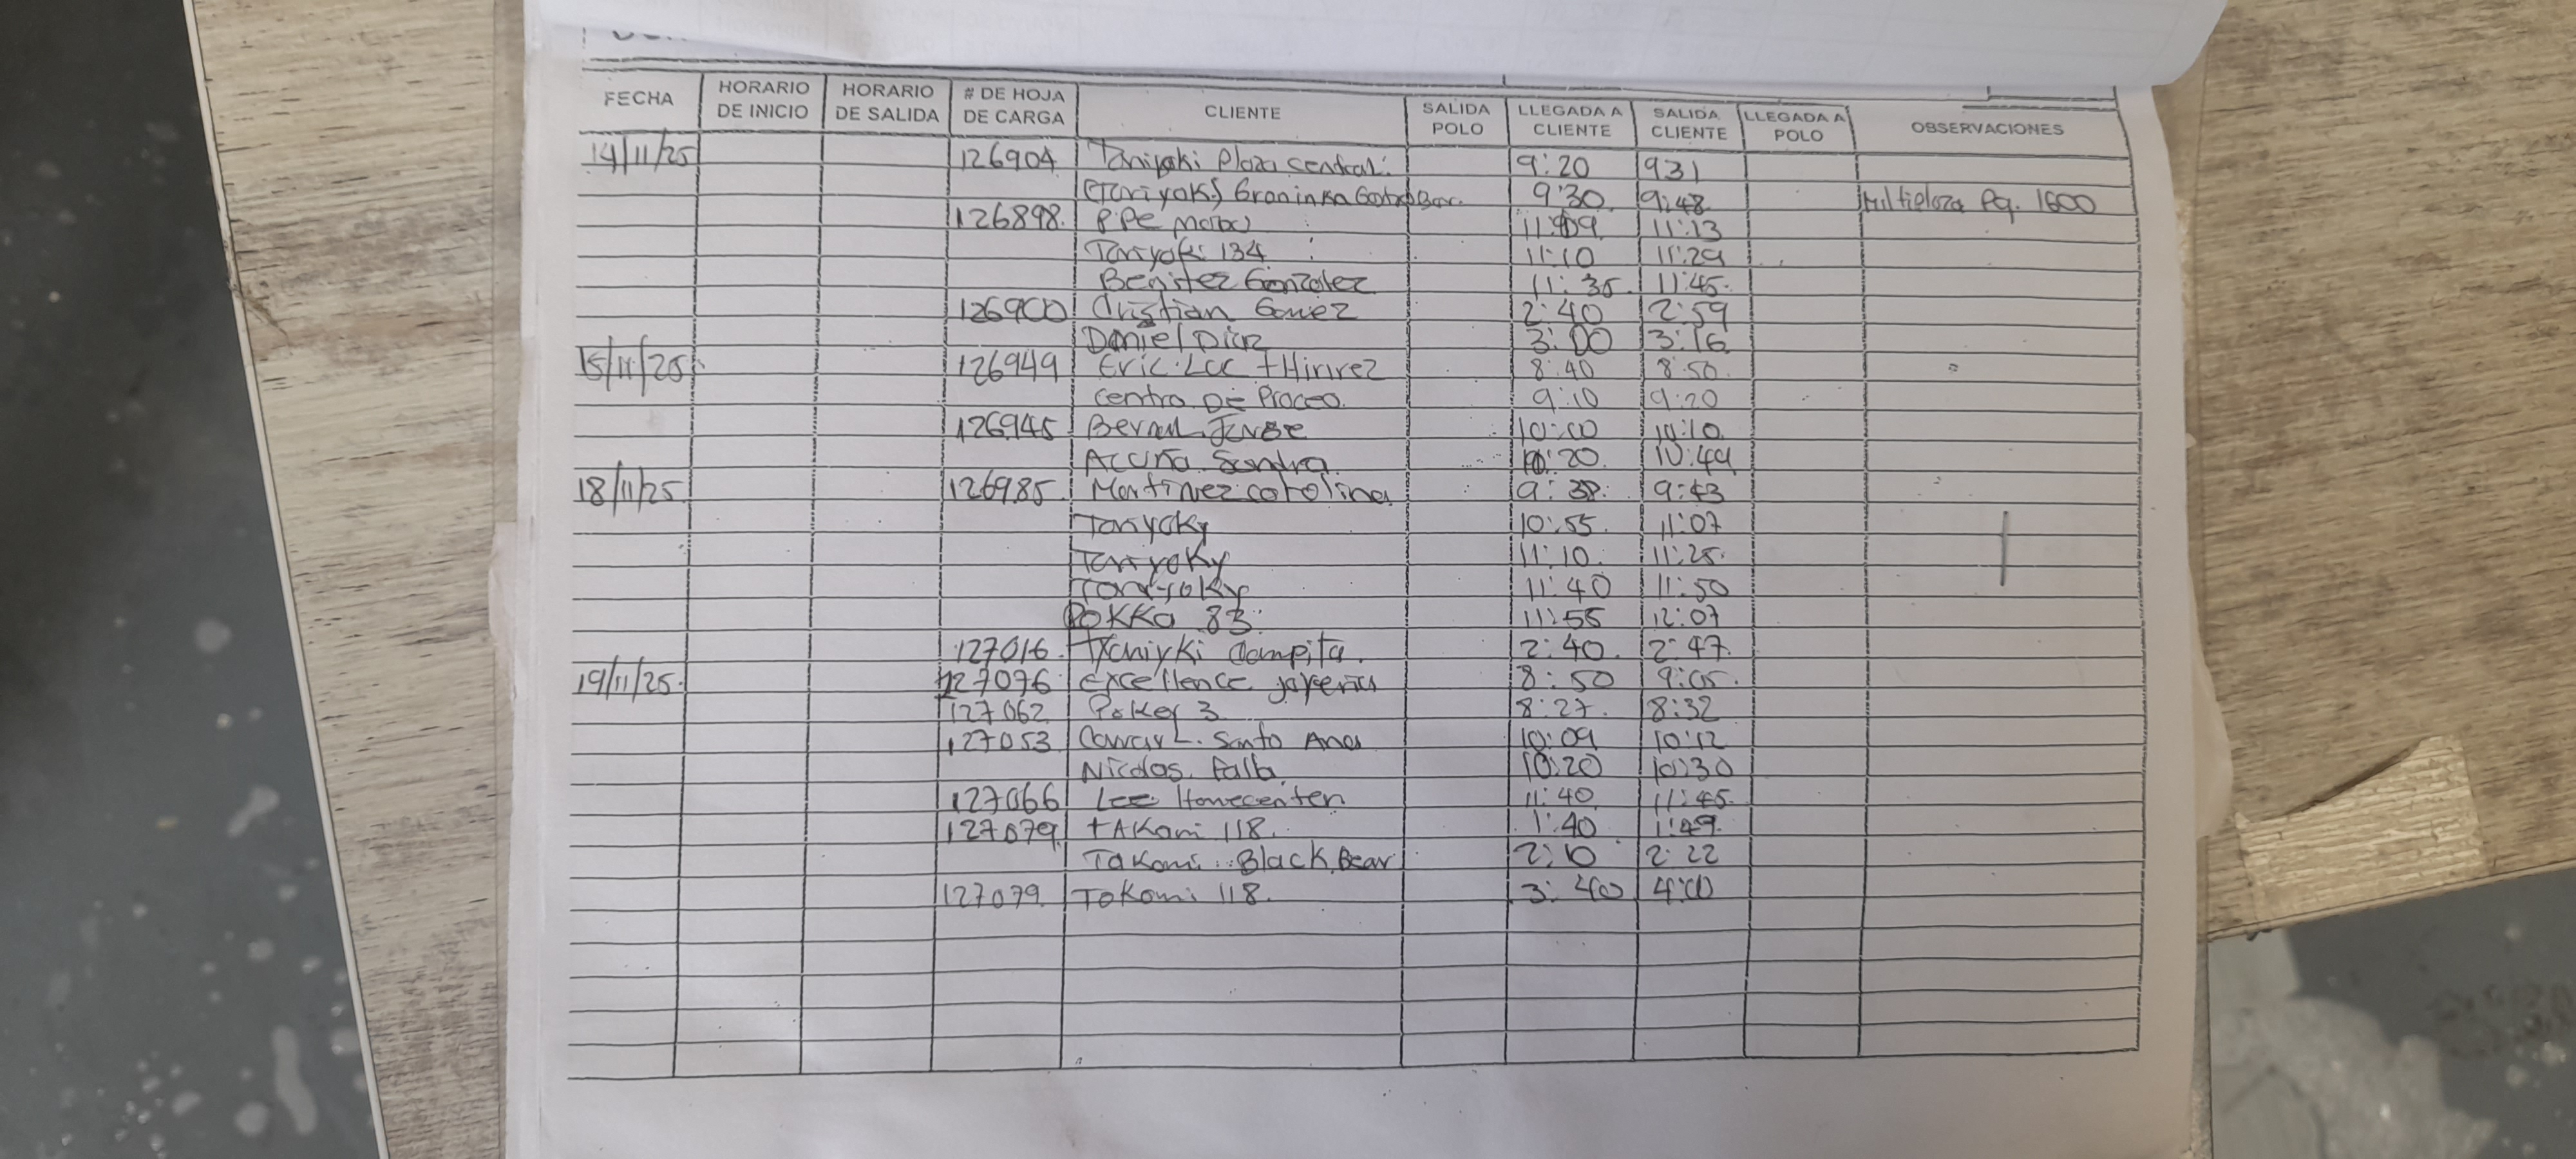 FECHA HORARIO DE INICIO HORARIO DE SALIDA # DE HOJA DE CARGA CLIENTE SALIDA POLO LLEGADA A CLIENTE SALIDA CLIENTE LLEGADA A POLO OBSERVACIONES
14/11/25 126904 Taniyaki Plaza central 9:20 931
(Tariyaki) 9:30 9:48 Multiplaza Pq. 1600
126898 P.PE 11:09 11:13
Tariyaki 134 11:10 11:29
Benitez Gonzalez 11:35 11:45
126900 Cristian Gomez 2:40 2:59
Daniel Diaz 3:00 3:16
15/11/25 126949 Eric Lee 8:40 8:50
centro De Proceo 9:10 9:20
126945 10:00 10:10
Acuña Sandra 10:20 10:49
18/11/25 126985 Martinez carolina 9:38 9:43
Tariyaky 10:55 11:07
Tariyaky 11:10 11:25
Tariyoky 11:40 11:50
POKKa 83 11:55 12:07
127016 Campita 2:40 2:47
19/11/25 127076 Excellence joyeria 8:50 9:05
127062 Poker 3 8:27 8:32
127053 Santo Ana 10:09 10:12
Nicolas 10:20 10:30
127066 Lee Homecenter 11:40 11:45
127079 tAKami 118. 1:40 1:49
Takami Black Bear 2:10 2:22
127079 ToKami 118. 3:40 4:00